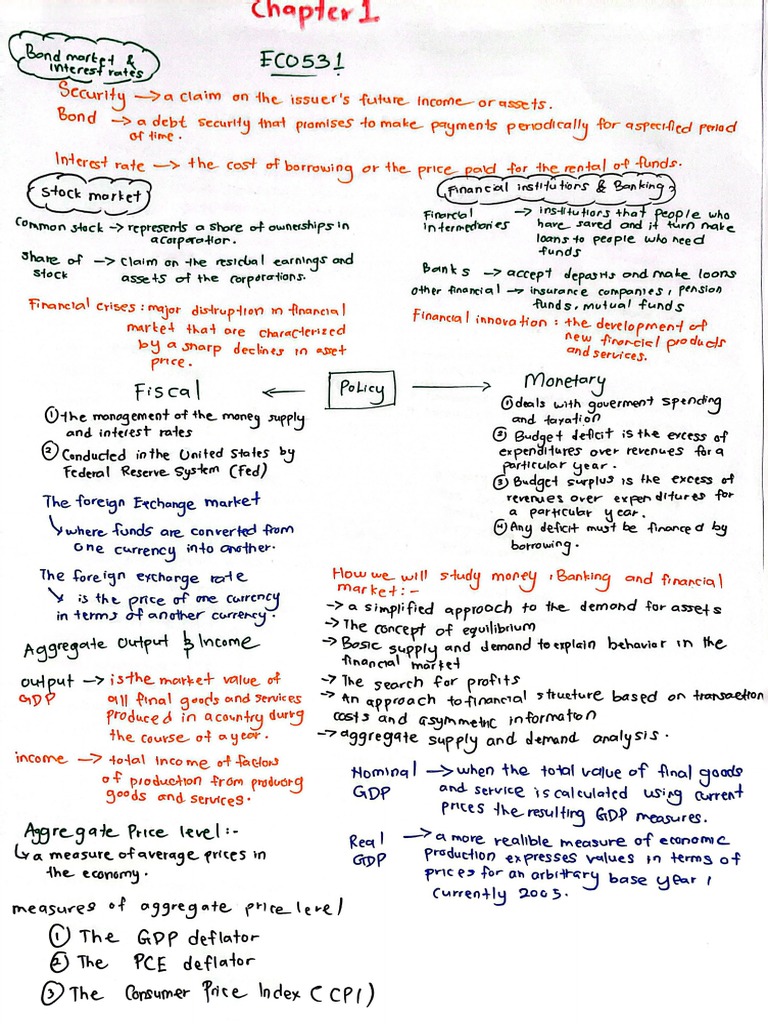 Chapter 1
ECO531
Bond market &
interest rates
Security → a claim on the issuer's future income or assets.
Bond → a debt security that promises to make payments periodically for a specified period
of time.
Interest rate → the cost of borrowing or the price paid for the rental of funds.
Stock market
Common stock → represents a share of ownerships in
a corporation.
Share of → claim on the residual earnings and
stock assets of the corporations.
Financial crises : major distruption in financial
market that are characterized
by a sharp declines in asset
price.
Financial institutions & Banking
Financial → institutions that people who
intermediaries have saved and it turn make
loans to people who need
funds
Banks → accept deposits and make loans
other financial → insurance companies, pension
funds, mutual funds
Financial innovation : the development of
new financial products
and services.
Fiscal ← Policy → Monetary
① the management of the money supply
and interest rates
② Conducted in the United States by
Federal Reserve System (Fed)
① deals with goverment spending
and taxation
② Budget deficit is the excess of
expenditures over revenues for a
particular year.
③ Budget surplus is the excess of
revenues over expenditures for
a particular year.
④ Any deficit must be financed by
borrowing.
The foreign Exchange market
↳ where funds are converted from
one currency into another.
The foreign exchange rate
↳ is the price of one currency
in terms of another currency.
Aggregate Output & Income
output → is the market value of
GDP all final goods and services
produced in a country durng
the course of a year.
income → total income of factors
of production from producng
goods and services.
Aggregate Price level:-
↳ a measure of average prices in
the economy.
measures of aggregate price level
① The GDP deflator
② The PCE deflator
③ The Consumer Price Index (CPI)
How we will study money, Banking and financial
market:-
→ a simplified approach to the demand for assets
→ The concept of equilibrium
→ Basic supply and demand to explain behavior in the
financial market
→ The search for profits
→ An approach to financial structure based on transaction
costs and asymmetric information
→ aggregate supply and demand analysis.
Nominal → when the total value of final goods
GDP and service is calculated using current
prices the resulting GDP measures.
Real → a more realible measure of economic
GDP production expresses values in terms of
prices for an arbitrary base year,
currently 2005.